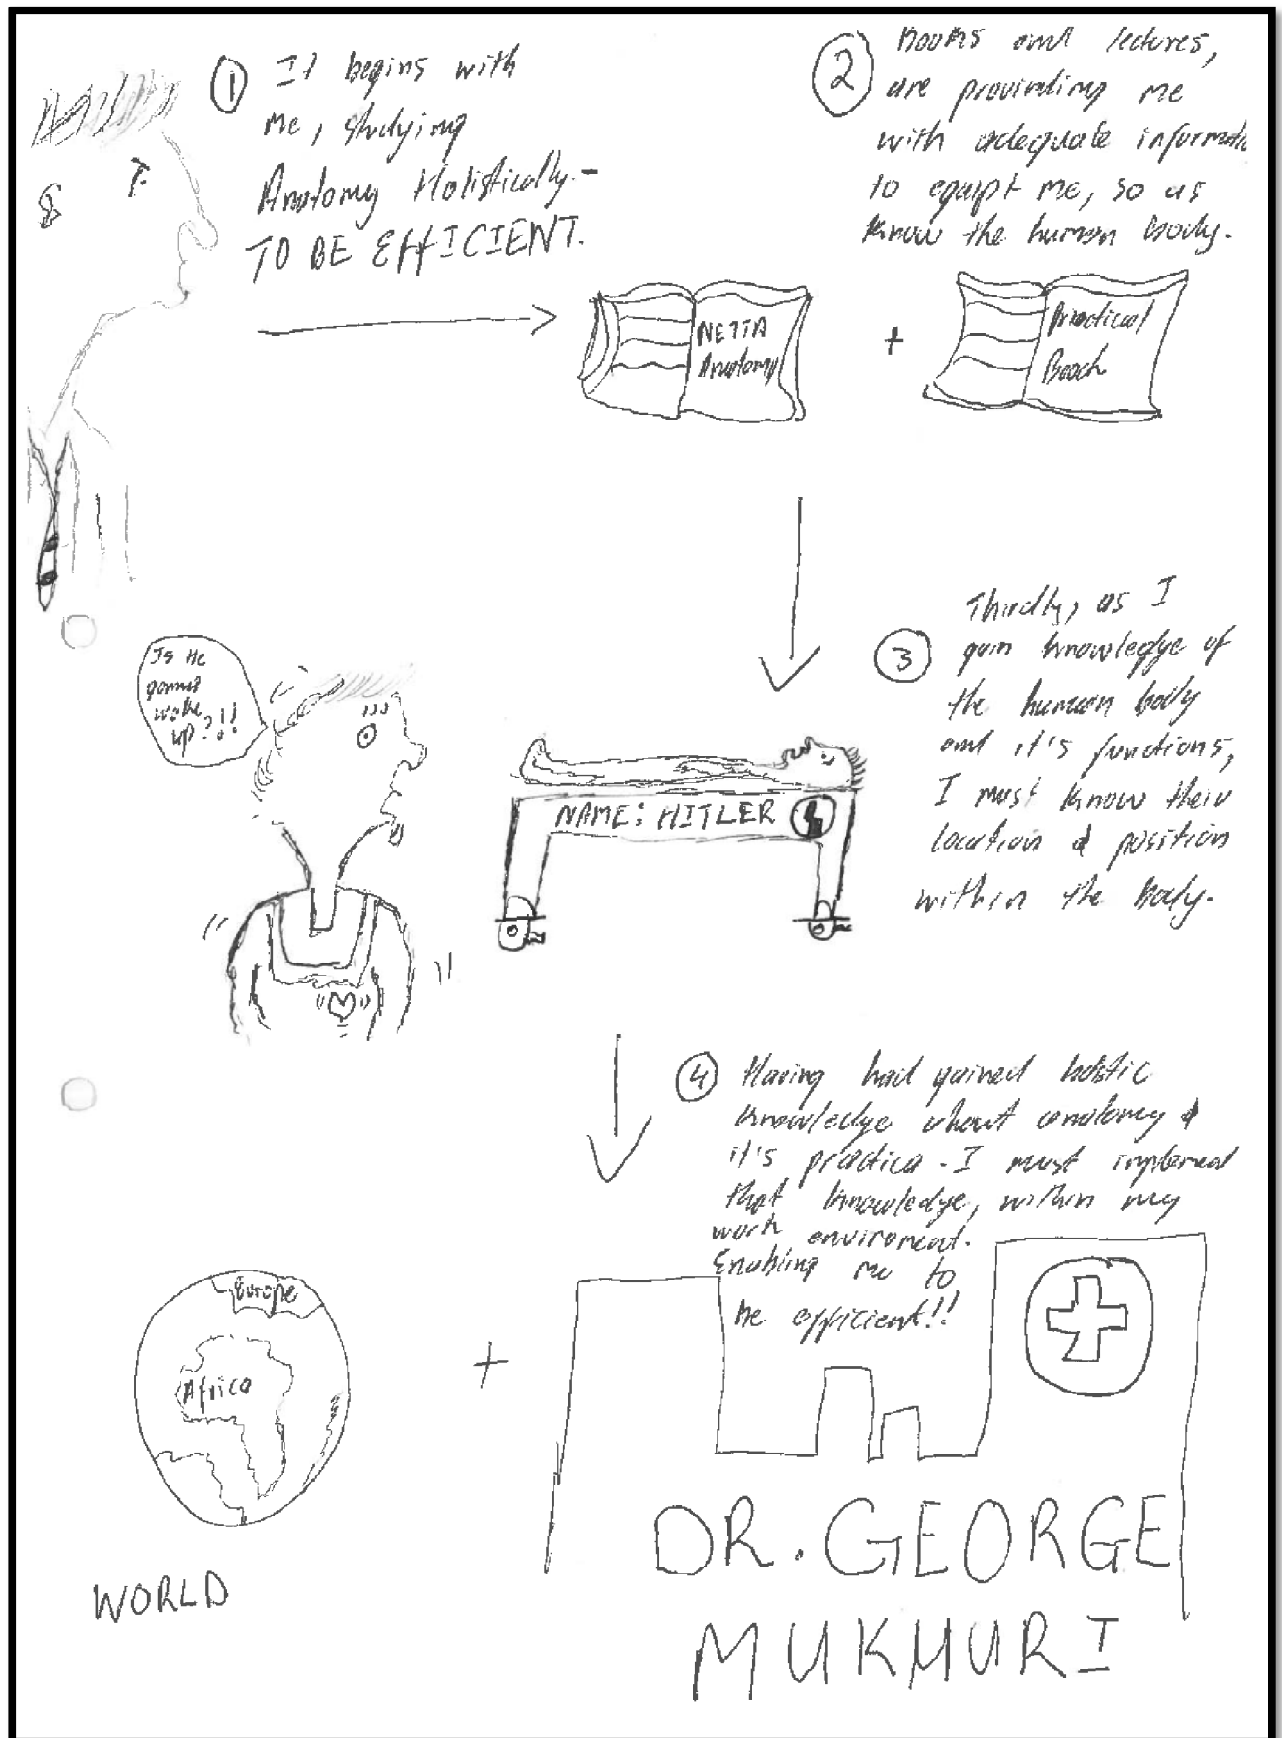 ① It begins with
me, studying
Anatomy Holistically.-
TO BE EFFICIENT.
② Books and lectures,
are providing me
with adequate informatio
to equipt me, so as
know the human body.
NETTA
Anatomy
+
Practical
Book
③ Thirdly, as I
gain knowledge of
the human body
and it's functions,
I must know their
location & position
within the body.
Is He
gonna
wake
up?!!
NAME: HITLER
④ Having had gained holistic
knowledge about anatomy &
it's practica. I must implement
that knowledge, within my
work enviroment.
Enabling me to
be efficient!!
Europe
Africa
+
WORLD
DR. GEORGE
MUKHURI